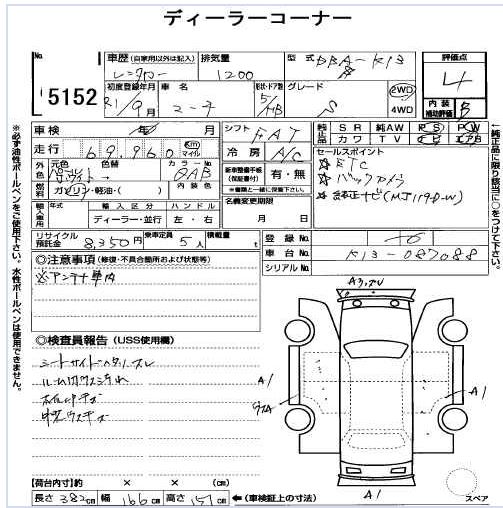 ディーラーコーナー
No.
5152
車歴 (自家用以外は記入)
レンタカー
排気量
1200
型式 DBA-K13
評価点
4
初度登録年月
R1/9月
車名
マーチ
形状・ドア数
5/HB
グレード
S
2WD
4WD
内装補助評価 B
車検 年 月
シフト FAT
純正 SR 純AW PS PW
革 カワ TV
走行 69,960 km マイル
冷房 A/C
セールスポイント
☆ETC
☆バックカメラ
☆純正ナビ(MJ117D-W)
外色 元色 色替 カラーNo.
QAB
燃料 ガソリン・軽油・( ) 内装色
新車整備手帳(保証書付) 有・無
※書類と一緒に保管下さい。
輸入車用 年式 輸入区分 ハンドル
ディーラー・並行 左・右
名義変更期限
月 日
リサイクル預託金 8,350円 乗車定員 5人 積載量 t
登録No.
車台No. K13-087088
シリアルNo.
◎注意事項 (修復・不具合箇所および状態等)
※アンテナ車内
◎検査員報告 (USS使用欄)
A1
A1
A1
スペア
(荷台内寸)約 × × (cm)
長さ 382cm 幅 166cm 高さ 151cm ←(車検証上の寸法)
※必ず油性ボールペンをご使用下さい。水性ボールペンは使用できません。
←純正品に限り該当に○をつけて下さい。